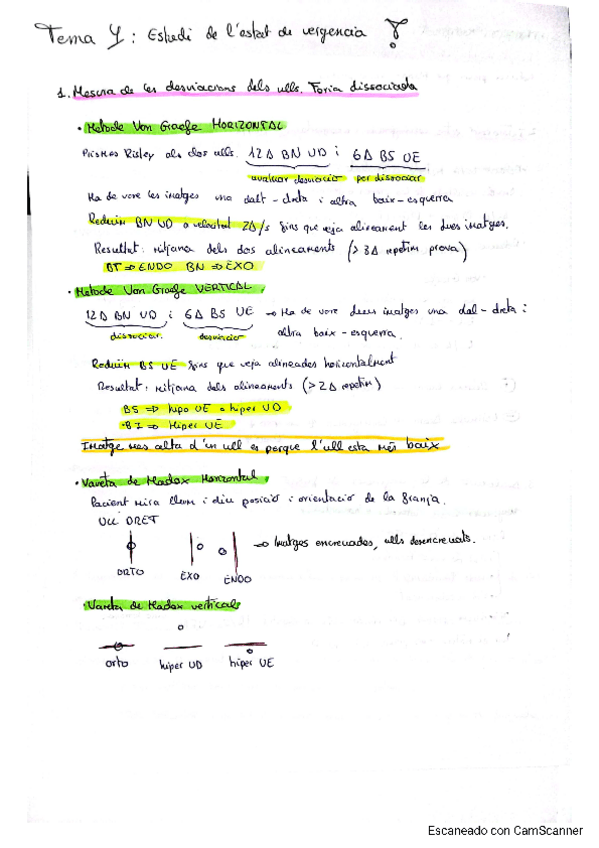 Tema 4: Estudi de l'estat de vergencia
1. Mesura de les desviacions dels ulls. Foria dissociada
• Metode Von Graefe HORIZONTAL
Prismes Risley als dos ulls. 12Δ BN UD i 6Δ BS UE
avaluar desviació per dissociar
Ha de vore les imatges una dalt-dreta i altra baix-esquerra
Reduim BN UD a velocitat 2Δ/s fins que veja alineament les dues imatges.
Resultat: mitjana dels dos alineaments (>3Δ repetim prova)
BT ⇒ ENDO BN ⇒ EXO
• Metode Von Graefe VERTICAL
12Δ BN UD i 6Δ BS UE → Ha de vore dues imatges una dal-dreta i
dissociar. desviacio altra baix-esquerra.
Reduim BS UE fins que veja alineades horizontalment
Resultat: mitjana dels alineaments (>2Δ repetim)
BS ⇒ hipo UE o hiper UD
·BI ⇒ Hiper UE
Imatge mes alta d'un ull es porque l'ull esta més baix
• Vareta de Madox Horizontal.
Pacient mira llum i diu posició i orientació de la franja.
ULL DRET
→ Imatges encreuades, ulls desencreuats.
ORTO EXO ENDO
• Vareta de Madox vertical
orto hiper UD hiper UE
Escaneado con CamScanner